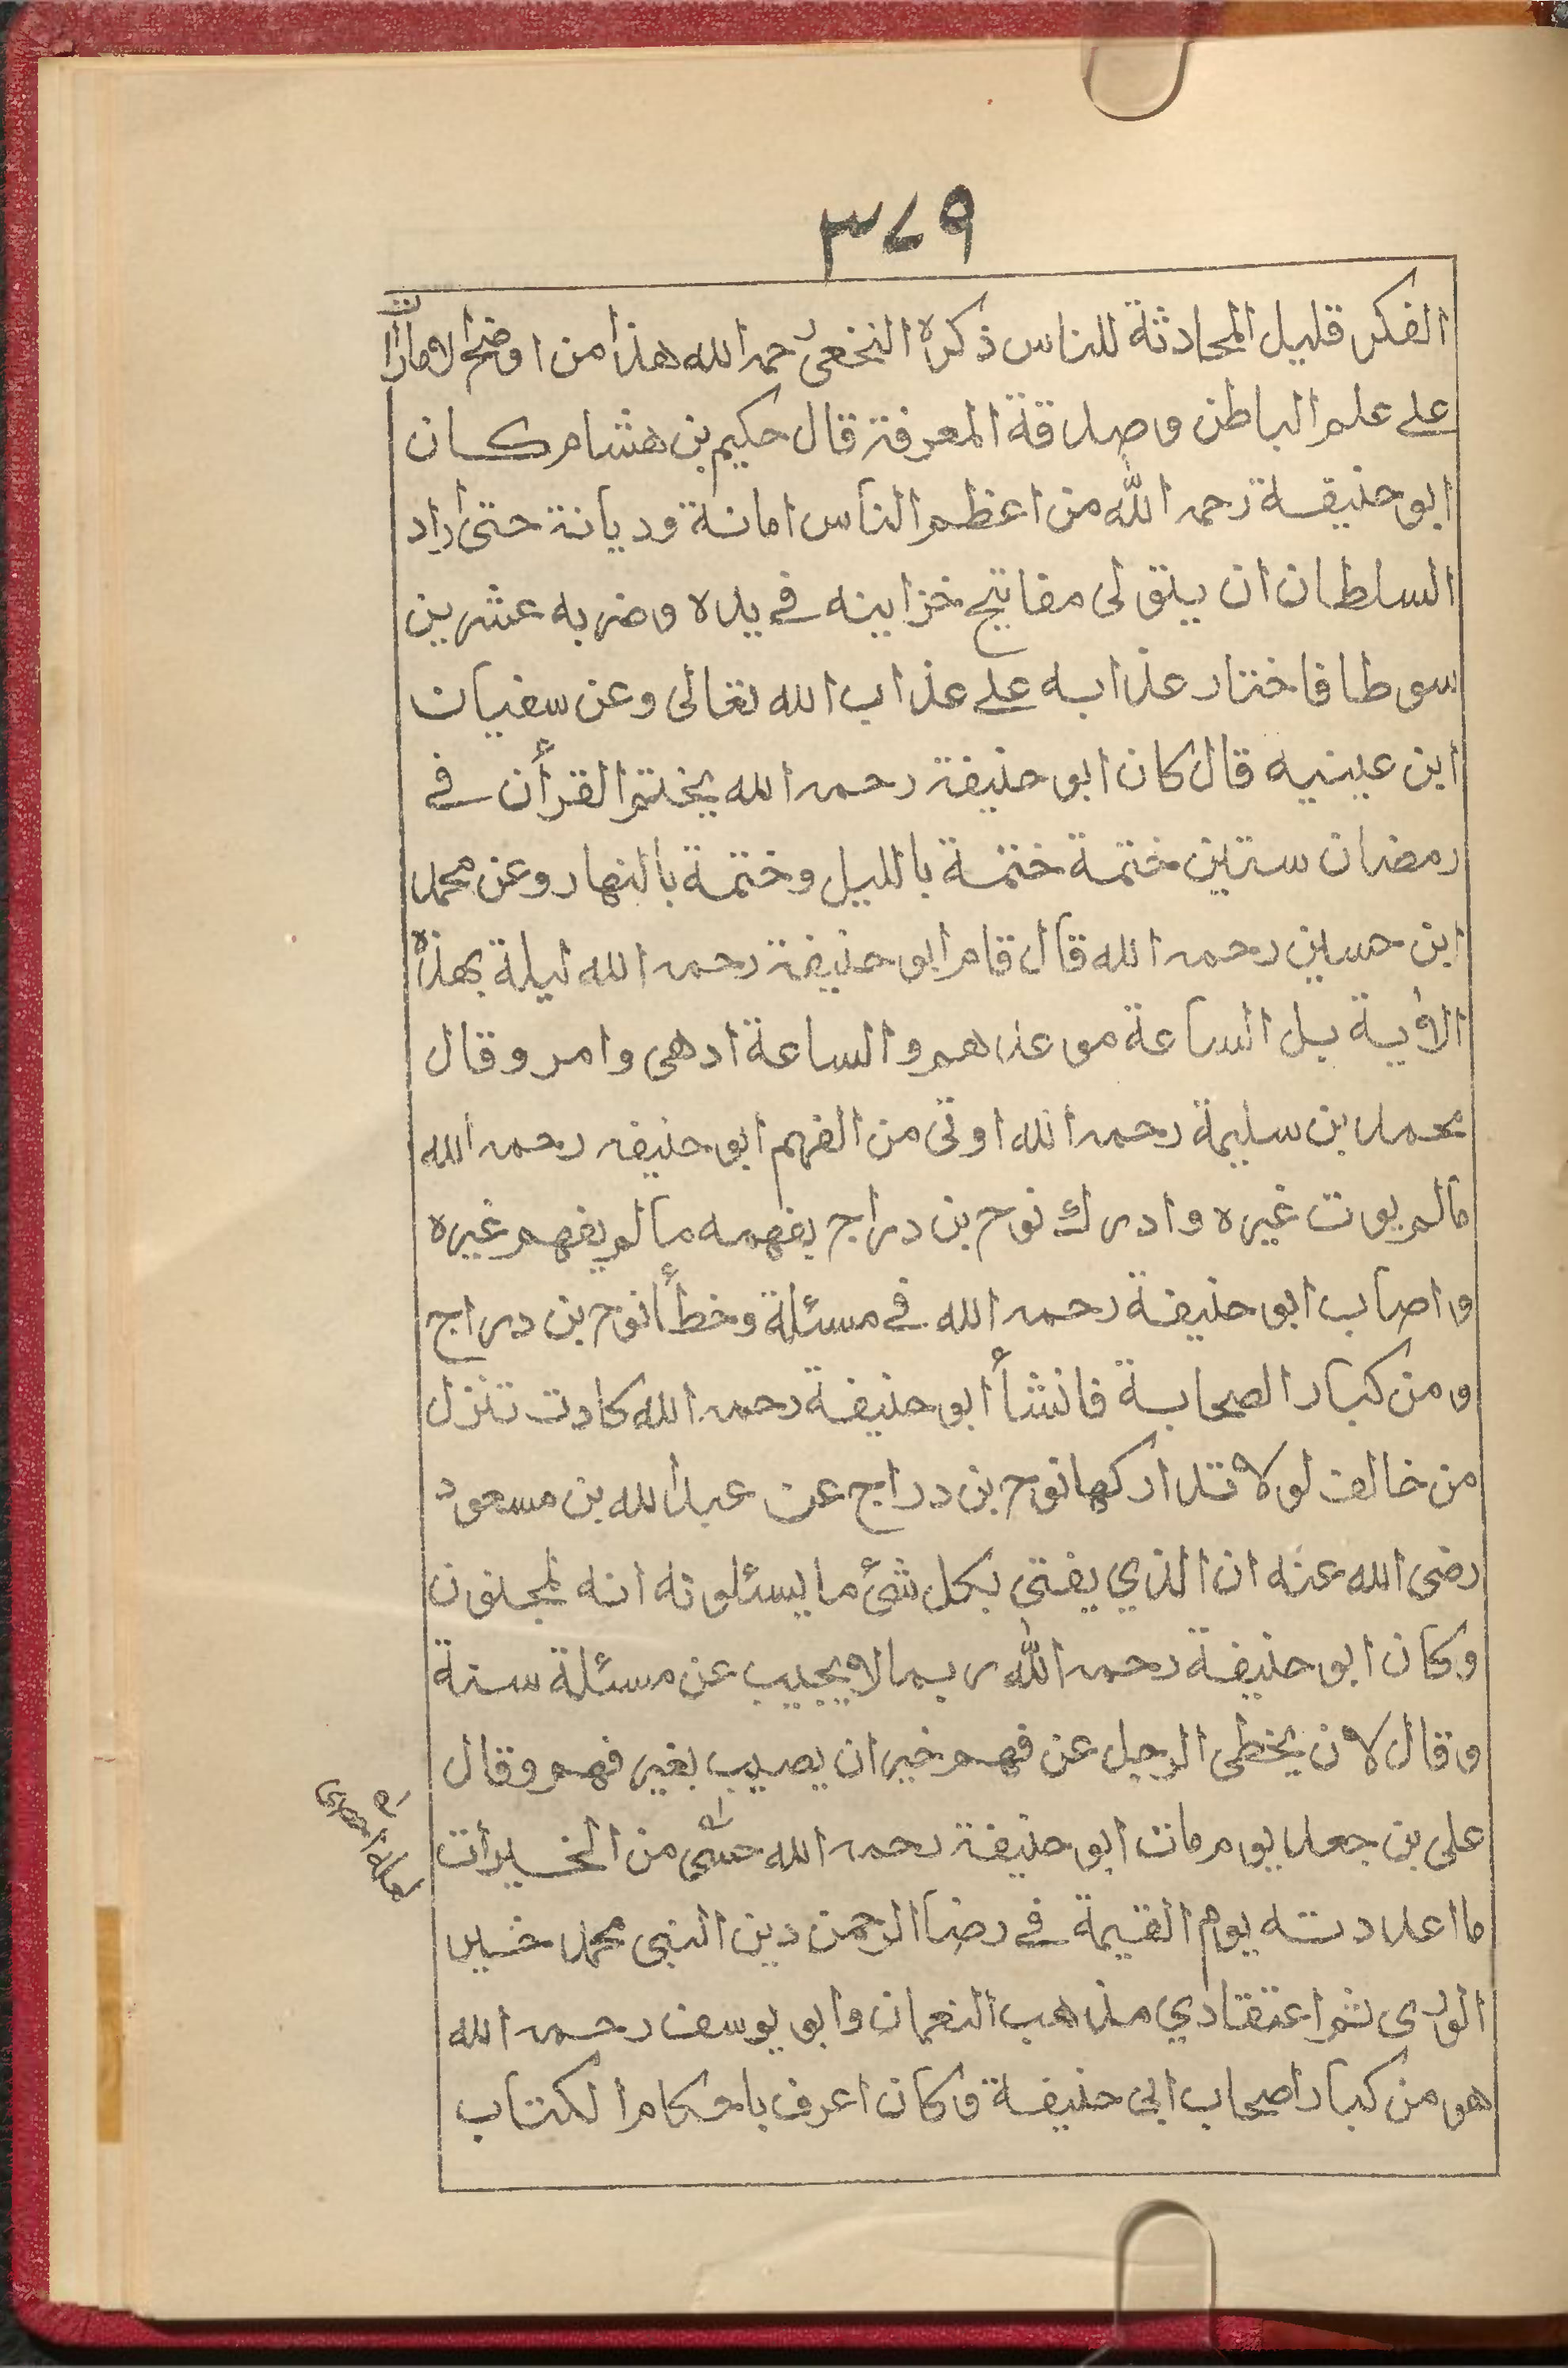 ٣٧٩
الفكر قليل المحادثة للناس ذكره النخعى رحمه الله هذا من اوضح الامارات
على علم الباطن وصداقة المعرفة قال حكيم بن هشام كان
ابو حنيفة رحمه الله من اعظم الناس امانة وديانة حتى اراد
السلطان ان يتولى مفاتيح خزاينه فى يده وضربه عشرين
سوطا فاختار عذابه على عذاب الله تعالى وعن سفيان
ابن عيينيه قال كان ابو حنيفة رحمه الله يختم القرأن فى
رمضان ستين ختمة ختمة بالليل وختمة بالنهار وعن محمد
ابن حسين رحمه الله قال قام ابو حنيفة رحمه الله ليلة بهذه
الاية بل الساعة موعدهم والساعة ادهى وامر وقال
محمد بن سليمة رحمه الله اوتى من الفهم ابو حنيفه رحمه الله
مالم يوت غيره وادرك نوح بن دراج بفهمه مالم يفهم غيره
واصاب ابو حنيفة رحمه الله فى مسئلة وخطأ نوح بن دراج
ومن كبار الصحابة فانشأ ابو حنيفة رحمه الله كادت تنزل
من خالف لولا تدارركها نوح بن دراج عن عبد الله بن مسعود
رضى الله عنه ان الذي يفتى بكل شئ ما يسئلونه انه لمجنون
وكان ابو حنيفة رحمه الله ربما لا يجيب عن مسئلة سنة
وقال لان يخطى الرجل عن فهم خير ان يصيب بغير فهم وقال
على بن جعد يوم مات ابو حنيفة رحمه الله حسبى من الخيرات
ما اعددته يوم القيمة فى رضا الرحمن دين النبى محمد خير
الورى ثم اعتقادي مذهب النعمان وابو يوسف رحمه الله
هو من كبار اصحاب ابى حنيفة وكان اعرف باحكام الكتاب